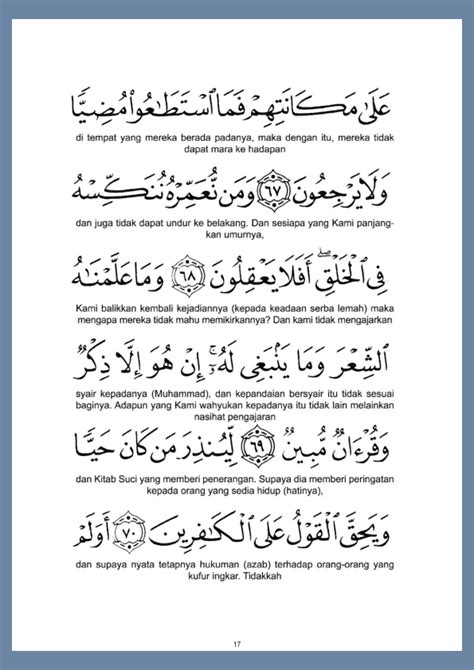 عَلَىٰ مَكَانَتِهِمْ فَمَا ٱسْتَطَـٰعُوا۟ مُضِيًّا
di tempat yang mereka berada padanya, maka dengan itu, mereka tidak
dapat mara ke hadapan
وَلَا يَرْجِعُونَ ٦٧ وَمَن نُّعَمِّرْهُ نُنَكِّسْهُ
dan juga tidak dapat undur ke belakang. Dan sesiapa yang Kami panjang-
kan umurnya,
فِى ٱلْخَلْقِ ۖ أَفَلَا يَعْقِلُونَ ٦٨ وَمَا عَلَّمْنَـٰهُ
Kami balikkan kembali kejadiannya (kepada keadaan serba lemah) maka
mengapa mereka tidak mahu memikirkannya? Dan kami tidak mengajarkan
ٱلشِّعْرَ وَمَا يَنۢبَغِى لَهُۥٓ ۚ إِنْ هُوَ إِلَّا ذِكْرٌ
syair kepadanya (Muhammad), dan kepandaian bersyair itu tidak sesuai
baginya. Adapun yang Kami wahyukan kepadanya itu tidak lain melainkan
nasihat pengajaran
وَقُرْءَانٌ مُّبِينٌ ٦٩ لِّيُنذِرَ مَن كَانَ حَيًّا
dan Kitab Suci yang memberi penerangan. Supaya dia memberi peringatan
kepada orang yang sedia hidup (hatinya),
وَيَحِقَّ ٱلْقَوْلُ عَلَى ٱلْكَـٰفِرِينَ ٧٠ أَوَلَمْ
dan supaya nyata tetapnya hukuman (azab) terhadap orang-orang yang
kufur ingkar. Tidakkah
17